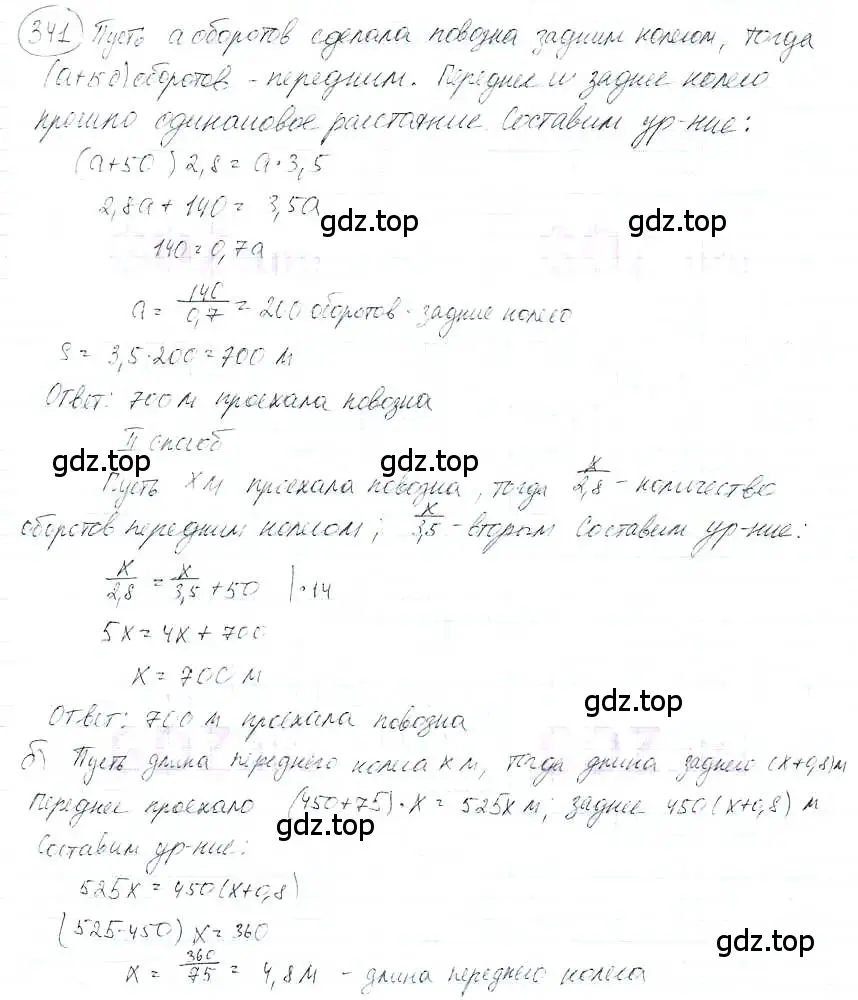 341 Пусть а оборотов сделала повозка задним колесом, тогда
(а+50) оборотов - передним. Переднее и заднее колесо
прошло одинаковое расстояние. Составим ур-ние:
(а+50) 2,8 = а·3,5
2,8а + 140 = 3,5а
gdz.top gdz.top
140 = 0,7а
а = 140/0,7 = 200 оборотов - задние колесо
S = 3,5·200 = 700 м
Ответ: 700 м проехала повозка
II способ
gdz.top gdz.top
Пусть х м проехала повозка, тогда х/2,8 - количество
оборотов передним колесом; х/3,5 - вторым Составим ур-ние:
х/2,8 = х/3,5 + 50 |·14
5х = 4х + 700
х = 700 м
gdz.top gdz.top
Ответ: 700 м проехала повозка
б) Пусть длина переднего колеса х м, тогда длина заднего (х+0,8) м
Переднее проехало (450+75)·х = 525х м; заднее 450(х+0,8) м
gdz.top gdz.top
Составим ур-ние:
525х = 450(х+0,8)
(525-450) х = 360
gdz.top gdz.top
х = 360/75 = 4,8 м - длина переднего колеса